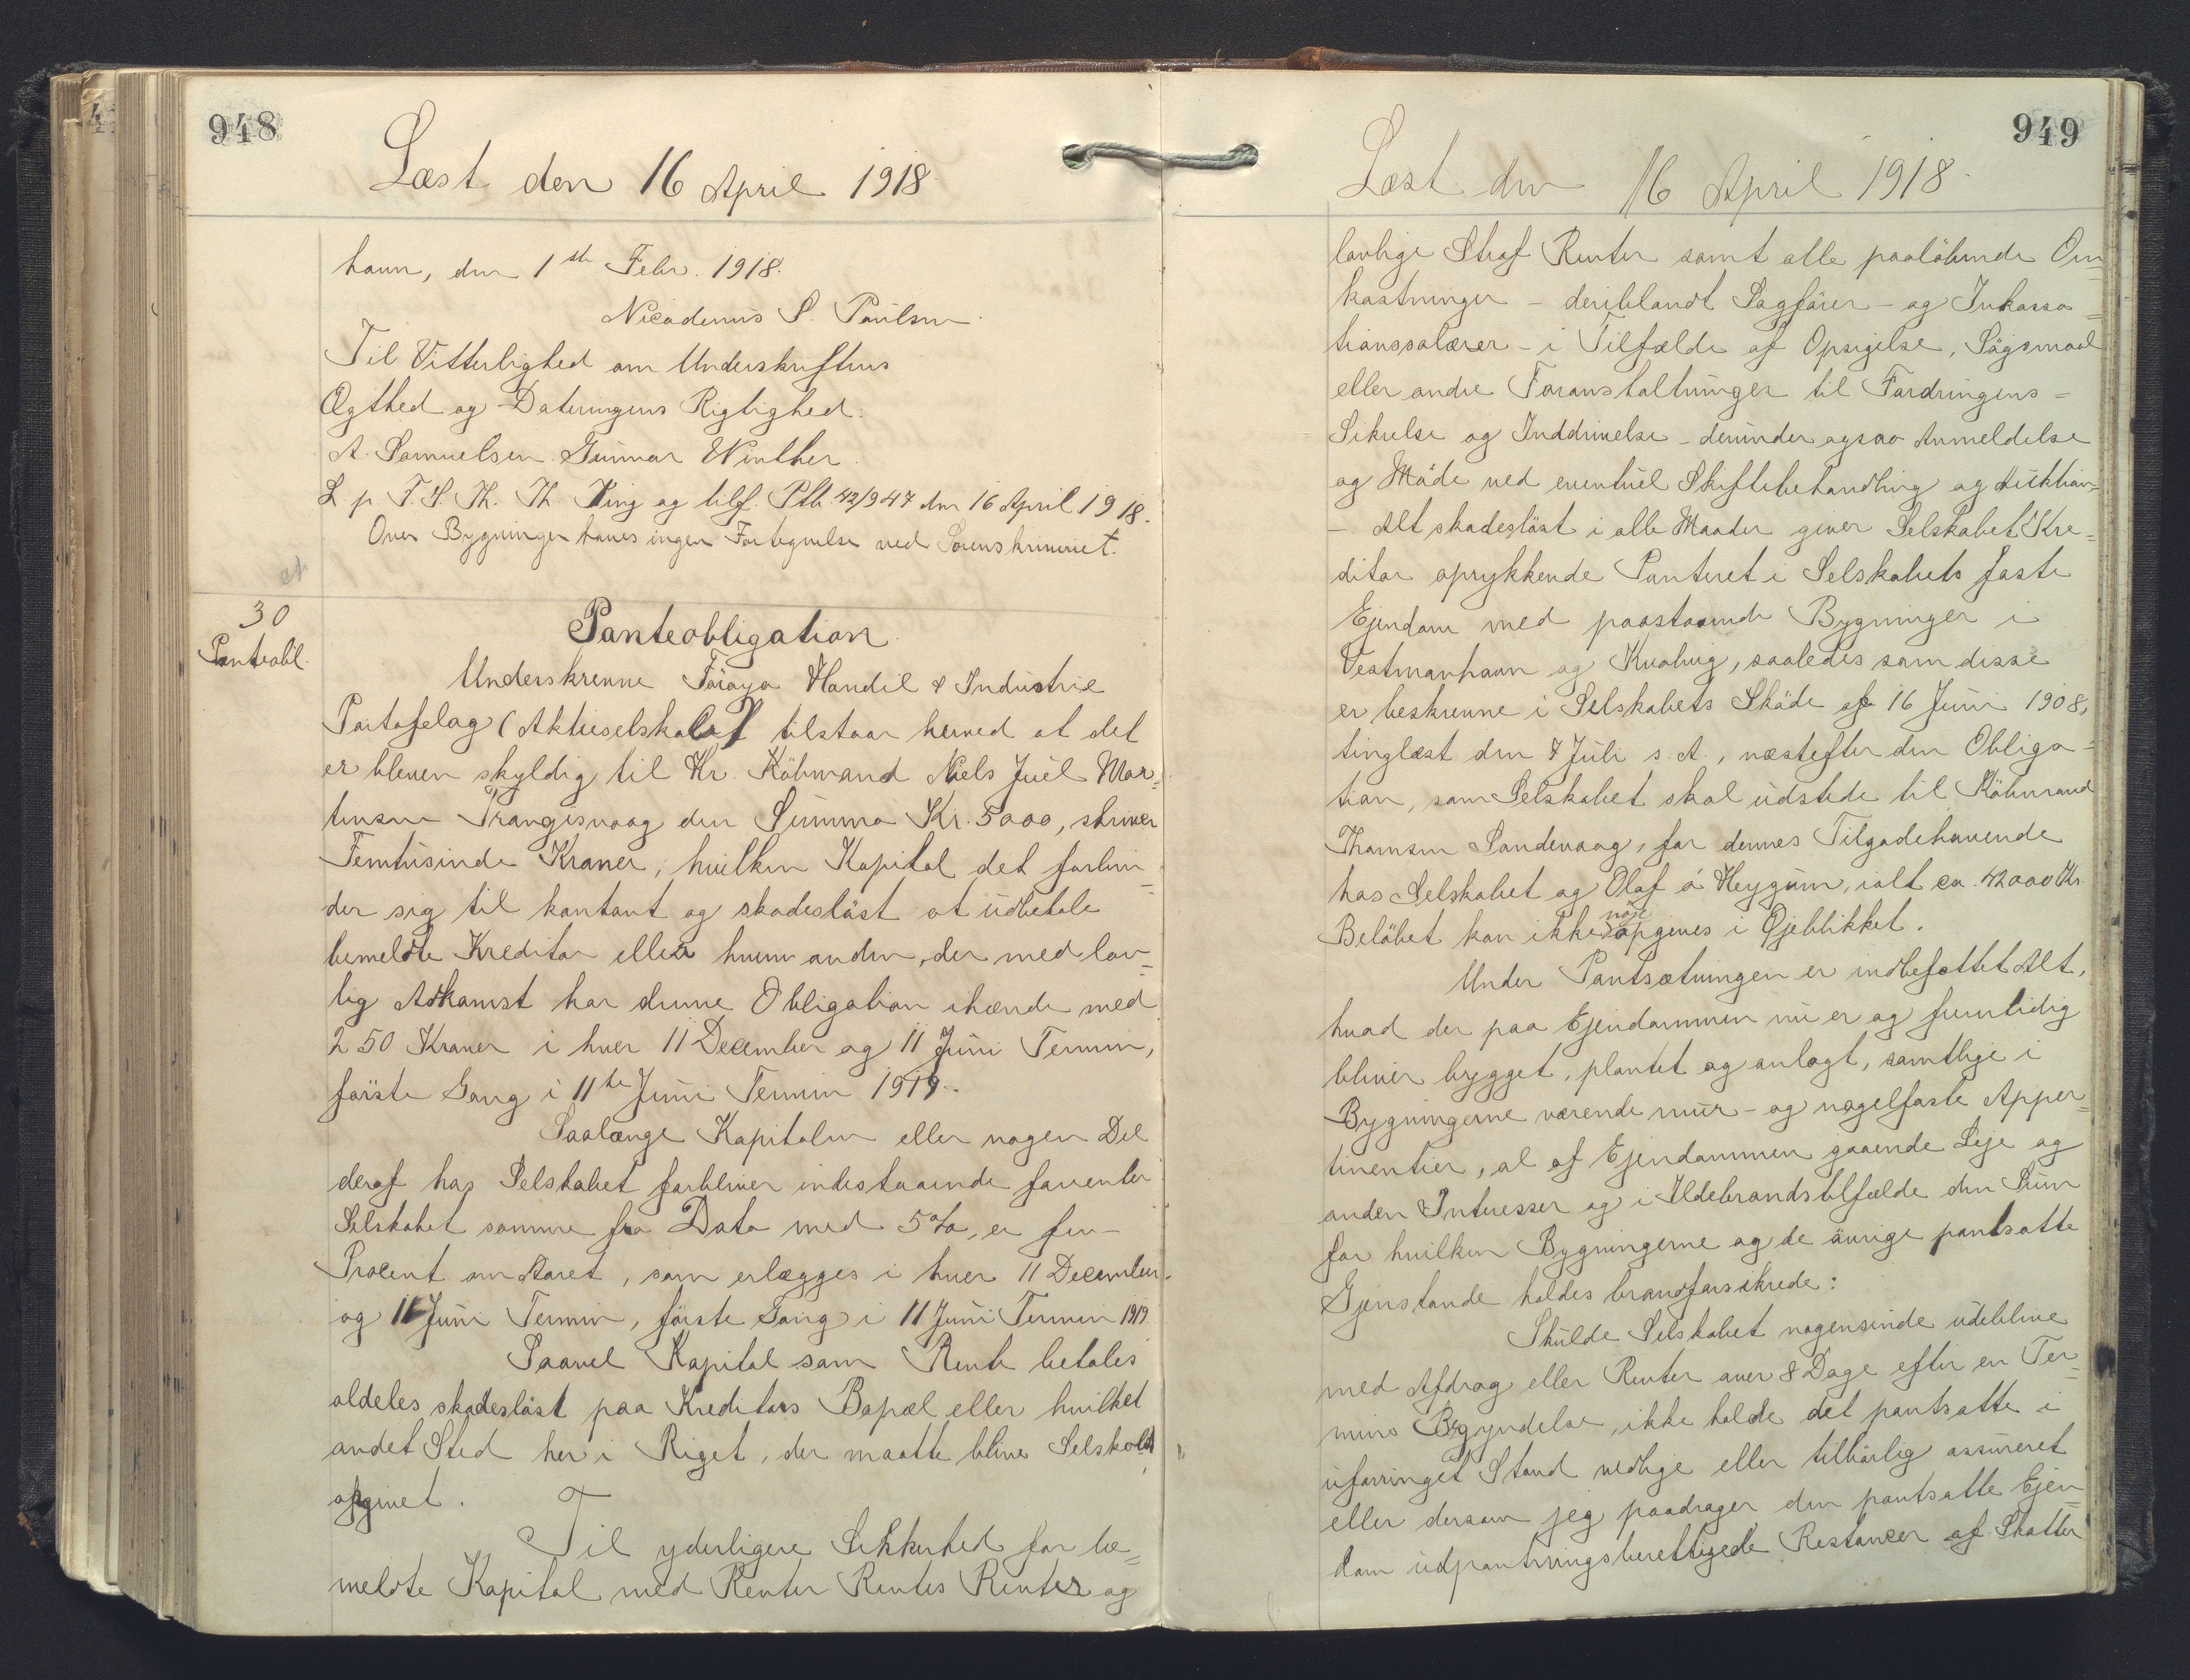 948
Læst den 16 April 1918
havn, den 1ste Febr. 1918.
Nicodemus S. Poulsen.
Til Vitterlighed om Underskriftens
Ægthed og Dateringens Rigtighed:
A. Samuelsen. Gunnar Winther.
L. p. F. S. Th. Th. Ting og tilf. Ptb. 42/947 den 16 April 1918.
Over Bygninger haves ingen Fortegnelse ved Sorenskriveriet.
30
Panteobl.
Panteobligation.
Underskrevne Föroya Handil & Industrie
Partafelag (Aktieselskabet) tilstaar herved at det
er bleven skyldig til Hr. Köbmand Niels Juel Mor=
tensen Trangisvaag den Summa Kr. 5000, skriver
Femtusinde Kroner, hvilken Kapital det forbin=
der sig til kontant og skadeslöst at udbetale
bemeldte Kreditor eller hvem anden, der med lov=
lig Adkomst har denne Obligation ihænde med
250 Kroner i hver 11 December og 11 Juni Termin,
förste Gang i 11te Juni Termin 1919.
Saalænge Kapitalen eller nogen Del
deraf hos Selskabet forbliver indestaaende forrenter
Selskabet samme fra Dato med 5%, er fem
Procent om Aaret, som erlægges i hver 11 December.
og 11 Juni Termin, förste Gang i 11 Juni Termin 1919.
Saavel Kapital som Rente betales
aldeles skadeslöst paa Kreditors Bopæl eller hvilket
andet Sted her i Riget, der maatte blive Selskabet
opgivet.
Til yderligere Sikkerhed for be=
meldte Kapital med Renter Rentes Renter og
949
Læst den 16 April 1918.
lovlige Straf Renter samt alle paalöbende Om=
kostninger - deriblandt Sagförer- og Inkassa=
tionssalærer - i Tilfælde af Opsigelse, Sögsmaal
eller andre Foranstaltninger til Fordringens=
Sikrelse og Inddrivelse - derunder ogsaa Anmeldelse
og Möde ved eventuel Skiftebehandling og Auktion
- Alt skadeslöst i alle Maader giver Selskabet Kre=
ditor oprykkende Panteret i Selskabets faste
Ejendom med paastaaende Bygninger i
Vestmanhavn og Kvalvig, saaledes som disse
er beskrevne i Selskabets Sköde af 16 Juni 1908,
tinglæst den 7 Juli s. A., næstefter den Obliga=
tion, som Selskabet skal udstede til Köbmand
Thomsen Sandevaag, for dennes Tilgodehavende
hos Selskabet og Olaf á Heygum, ialt ca. 42000 Kr.
Belöbet kan ikke nöje opgives i Öjeblikket.
Under Pantsætningen er indbefattet Alt,
hvad der paa Ejendommen nu er og fremtidig
bliver bygget, plantet og anlagt, samtlige i
Bygningerne værende mur- og nagelfaste Apper=
tinentier, al af Ejendommen gaaende Leje og
anden Interesser og i Ildebrandstilfælde den Sum
for hvilken Bygningerne og de övrige pantsatte
Gjenstande holdes brandforsikrede:
Skulde Selskabet nogensinde udeblive
med Afdrag eller Renter over 8 Dage efter en Ter=
mins Begyndelse, ikke holde det pantsatte i
uforringet Stand vedlige eller tilbörlig assureret
eller dersom jeg paadrager den pantsatte Ejen=
dom udpantningsberettigede Restancer af Skatter